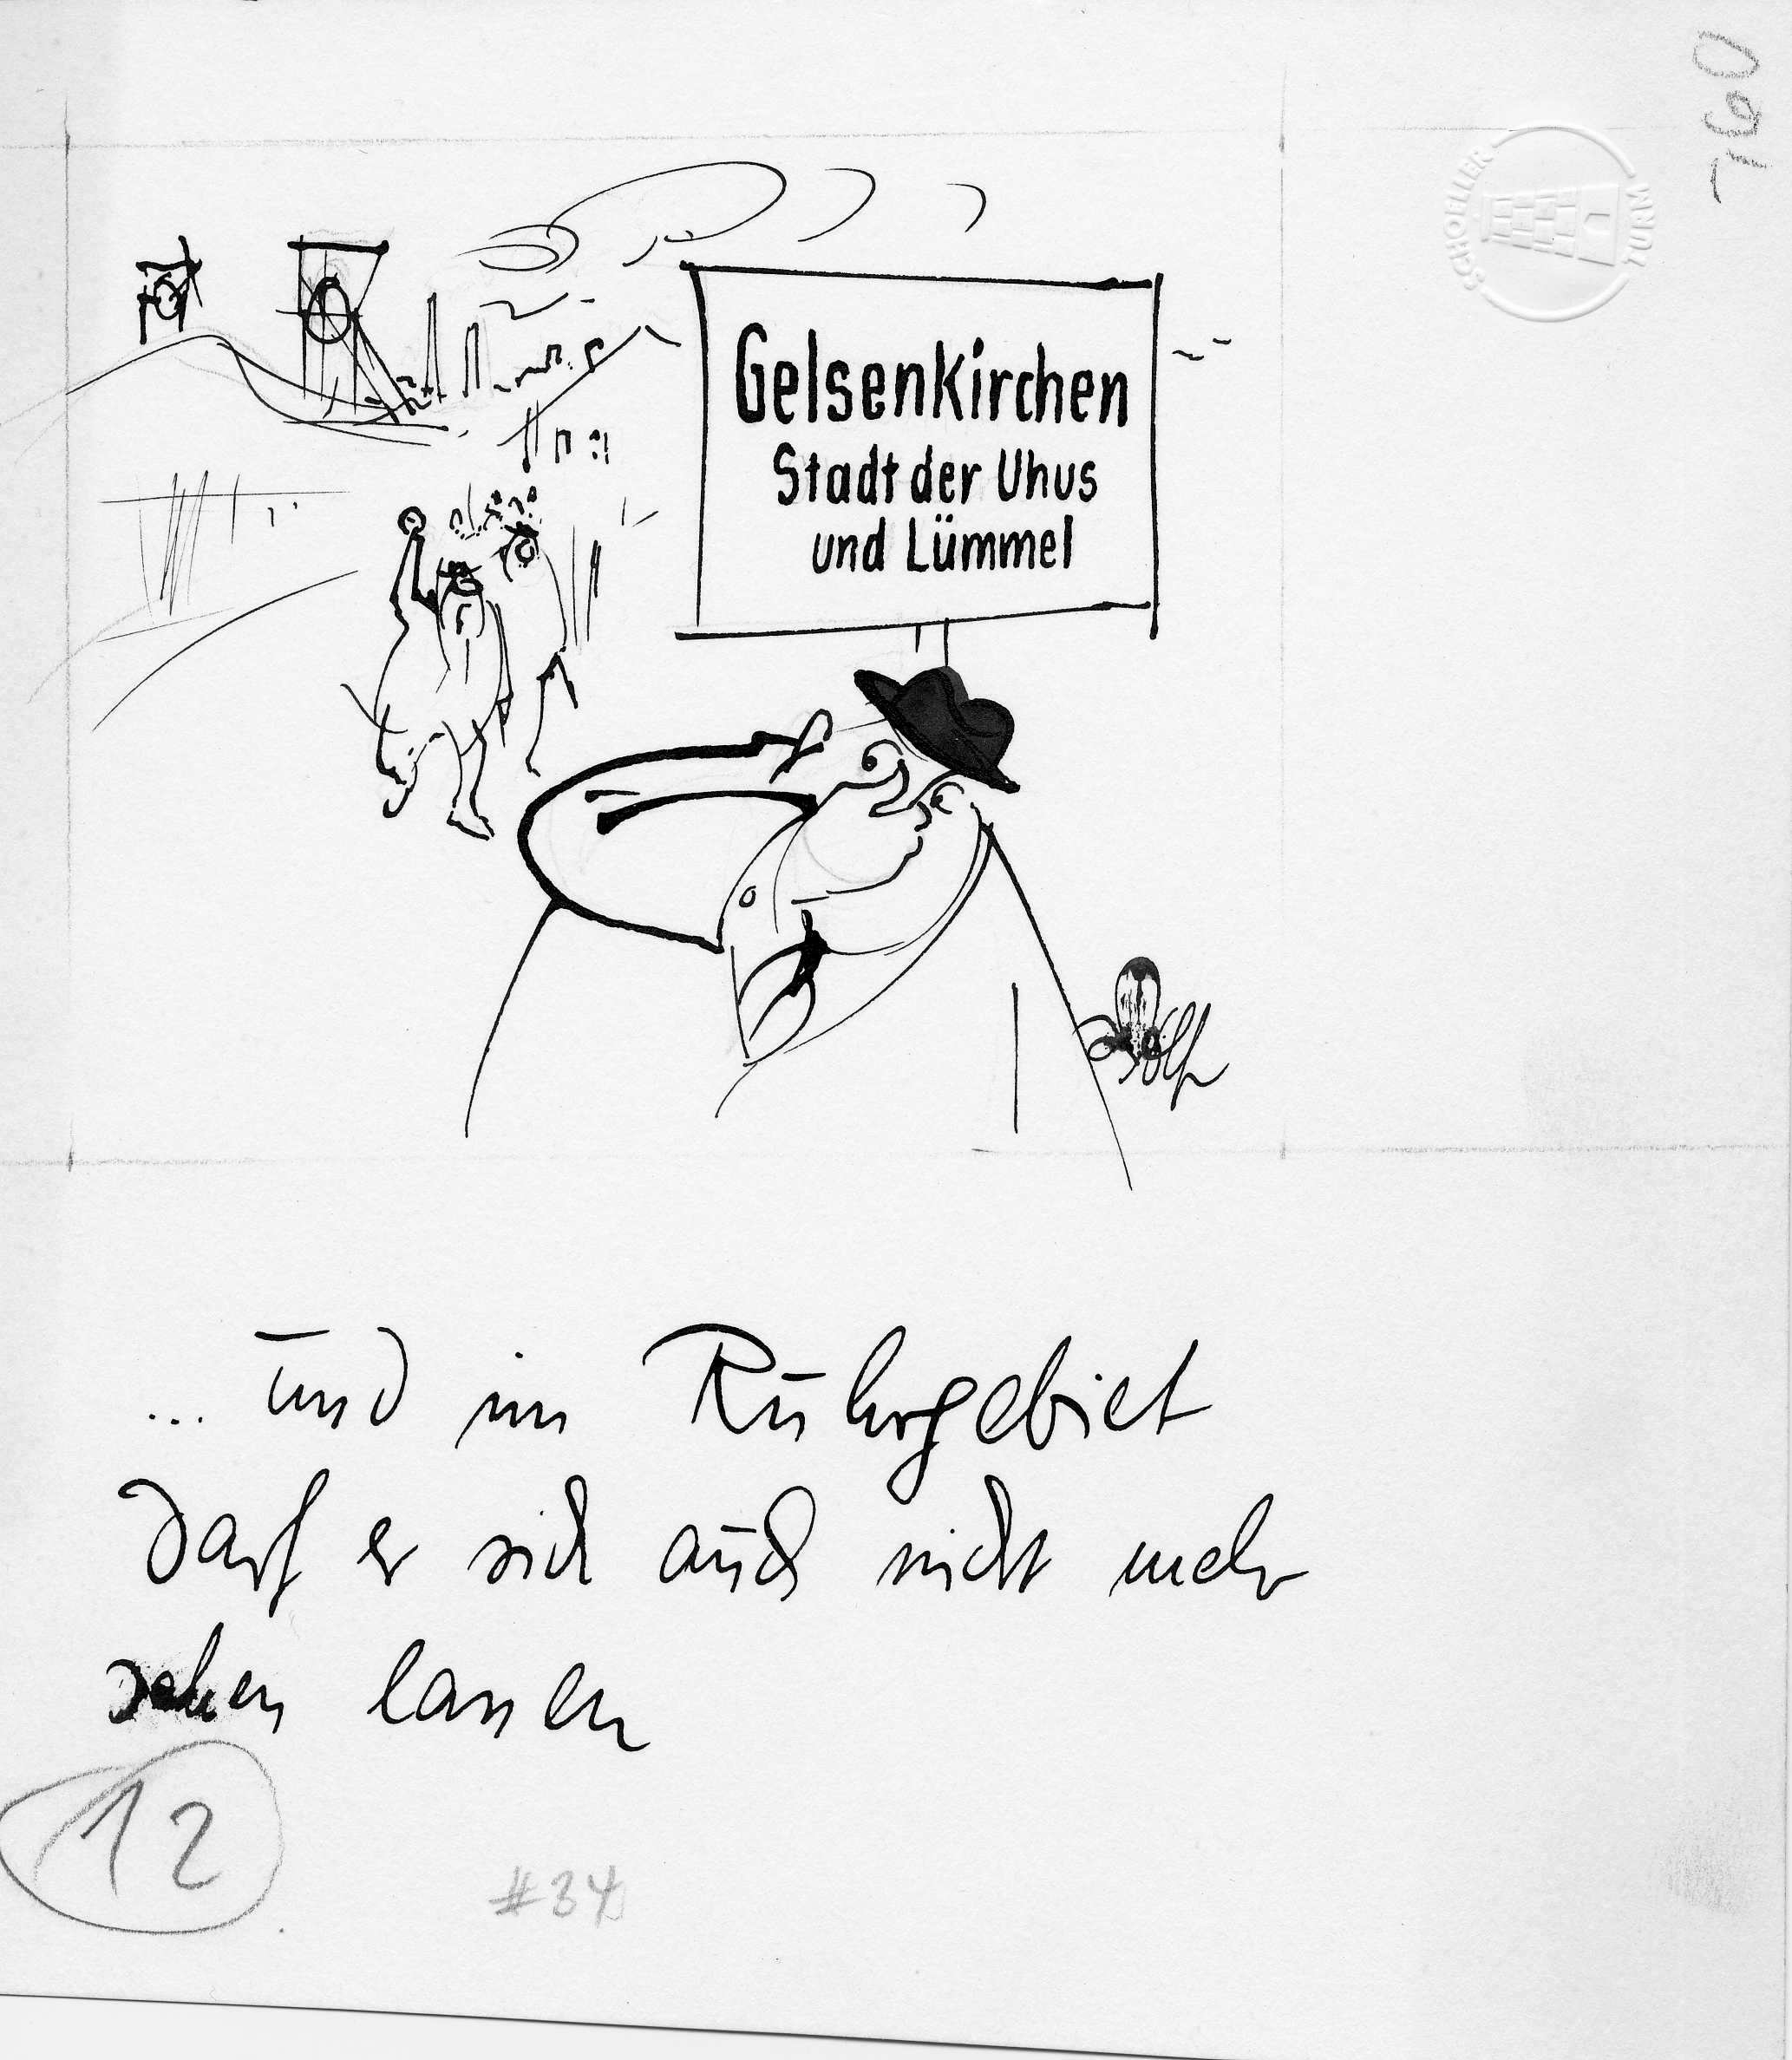 760
SCHOELLER TURM
Gelsenkirchen
Stadt der Uhus
und Lümmel
... und im Ruhrgebiet
darf er sich auch nicht mehr
sehen lassen
12
#34